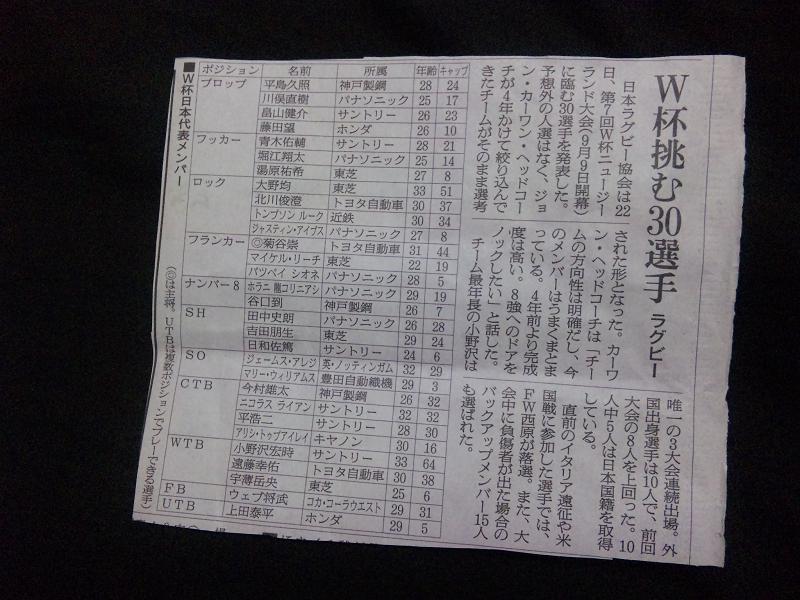 W杯挑む30選手
ラグビー
日本ラグビー協会は22
日、第7回W杯ニュージー
ランド大会(9月9日開幕)
に臨む30選手を発表した。
予想外の人選はなく、ジョ
ン・カーワン・ヘッドコー
チが4年かけて絞り込んで
きたチームがそのまま選考
された形となった。カーワ
ン・ヘッドコーチは「チー
ムの方向性は明確だし、今
のメンバーはうまくまとま
っている。4年前より完成
度は高い。8強へのドアを
ノックしたい」と話した。
チーム最年長の小野沢は
唯一の3大会連続出場。外
国出身選手は10人で、前回
大会の8人を上回った。10
人中5人は日本国籍を取得
している。
直前のイタリア遠征や米
国戦に参加した選手では、
FW西原が落選。また、大
会中に負傷者が出た場合の
バックアップメンバー15人
も選ばれた。
■W杯日本代表メンバー
(◎は主将。UTBは複数ポジションでプレーできる選手)
ポジション 名前 所属 年齢 キャップ
プロップ 平島久照 神戸製鋼 28 24
川俣直樹 パナソニック 25 17
畠山健介 サントリー 26 23
藤田望 ホンダ 26 10
フッカー 青木佑輔 サントリー 28 21
堀江翔太 パナソニック 25 14
湯原祐希 東芝 27 8
ロック 大野均 東芝 33 51
北川俊澄 トヨタ自動車 30 37
トンプソン ルーク 近鉄 30 34
ジャスティン・アイブス パナソニック 27 8
フランカー ◎菊谷崇 トヨタ自動車 31 44
マイケル・リーチ 東芝 22 19
バツベイ シオネ パナソニック 28 5
ナンバー8 ホラニ 龍コリニアシ パナソニック 29 19
谷口到 神戸製鋼 26 7
SH 田中史朗 パナソニック 26 28
吉田朋生 東芝 29 24
日和佐篤 サントリー 24 6
SO ジェームス・アレジ 英・ノッティンガム 32 29
マリー・ウィリアムス 豊田自動織機 29 3
CTB 今村雄太 神戸製鋼 26 32
ニコラス ライアン サントリー 32 32
平浩二 サントリー 28 30
アリシ・トゥプアイレイ キヤノン 30 16
WTB 小野沢宏時 サントリー 33 64
遠藤幸佑 トヨタ自動車 30 38
宇薄岳央 東芝 25 6
FB ウェブ将武 コカ・コーラウエスト 29 31
UTB 上田泰平 ホンダ 29 5